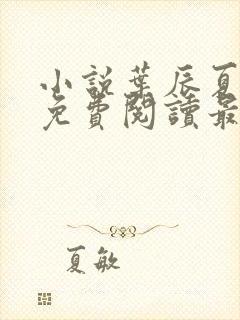 小說葉辰夏
免費閱讀最
夏敏